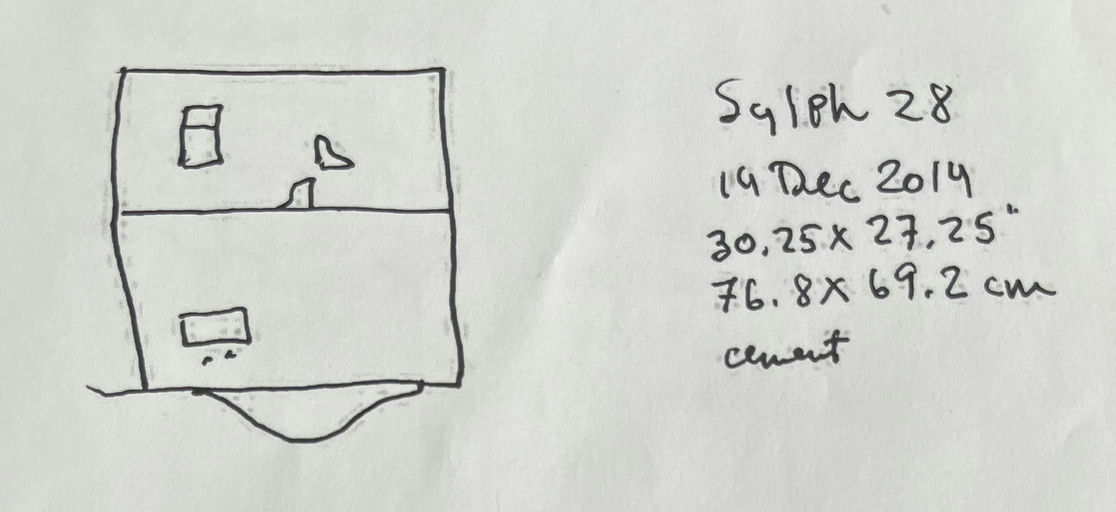 Sylph 28
14 Dec 2014
30.25 x 27.25"
76.8 x 69.2 cm
cement